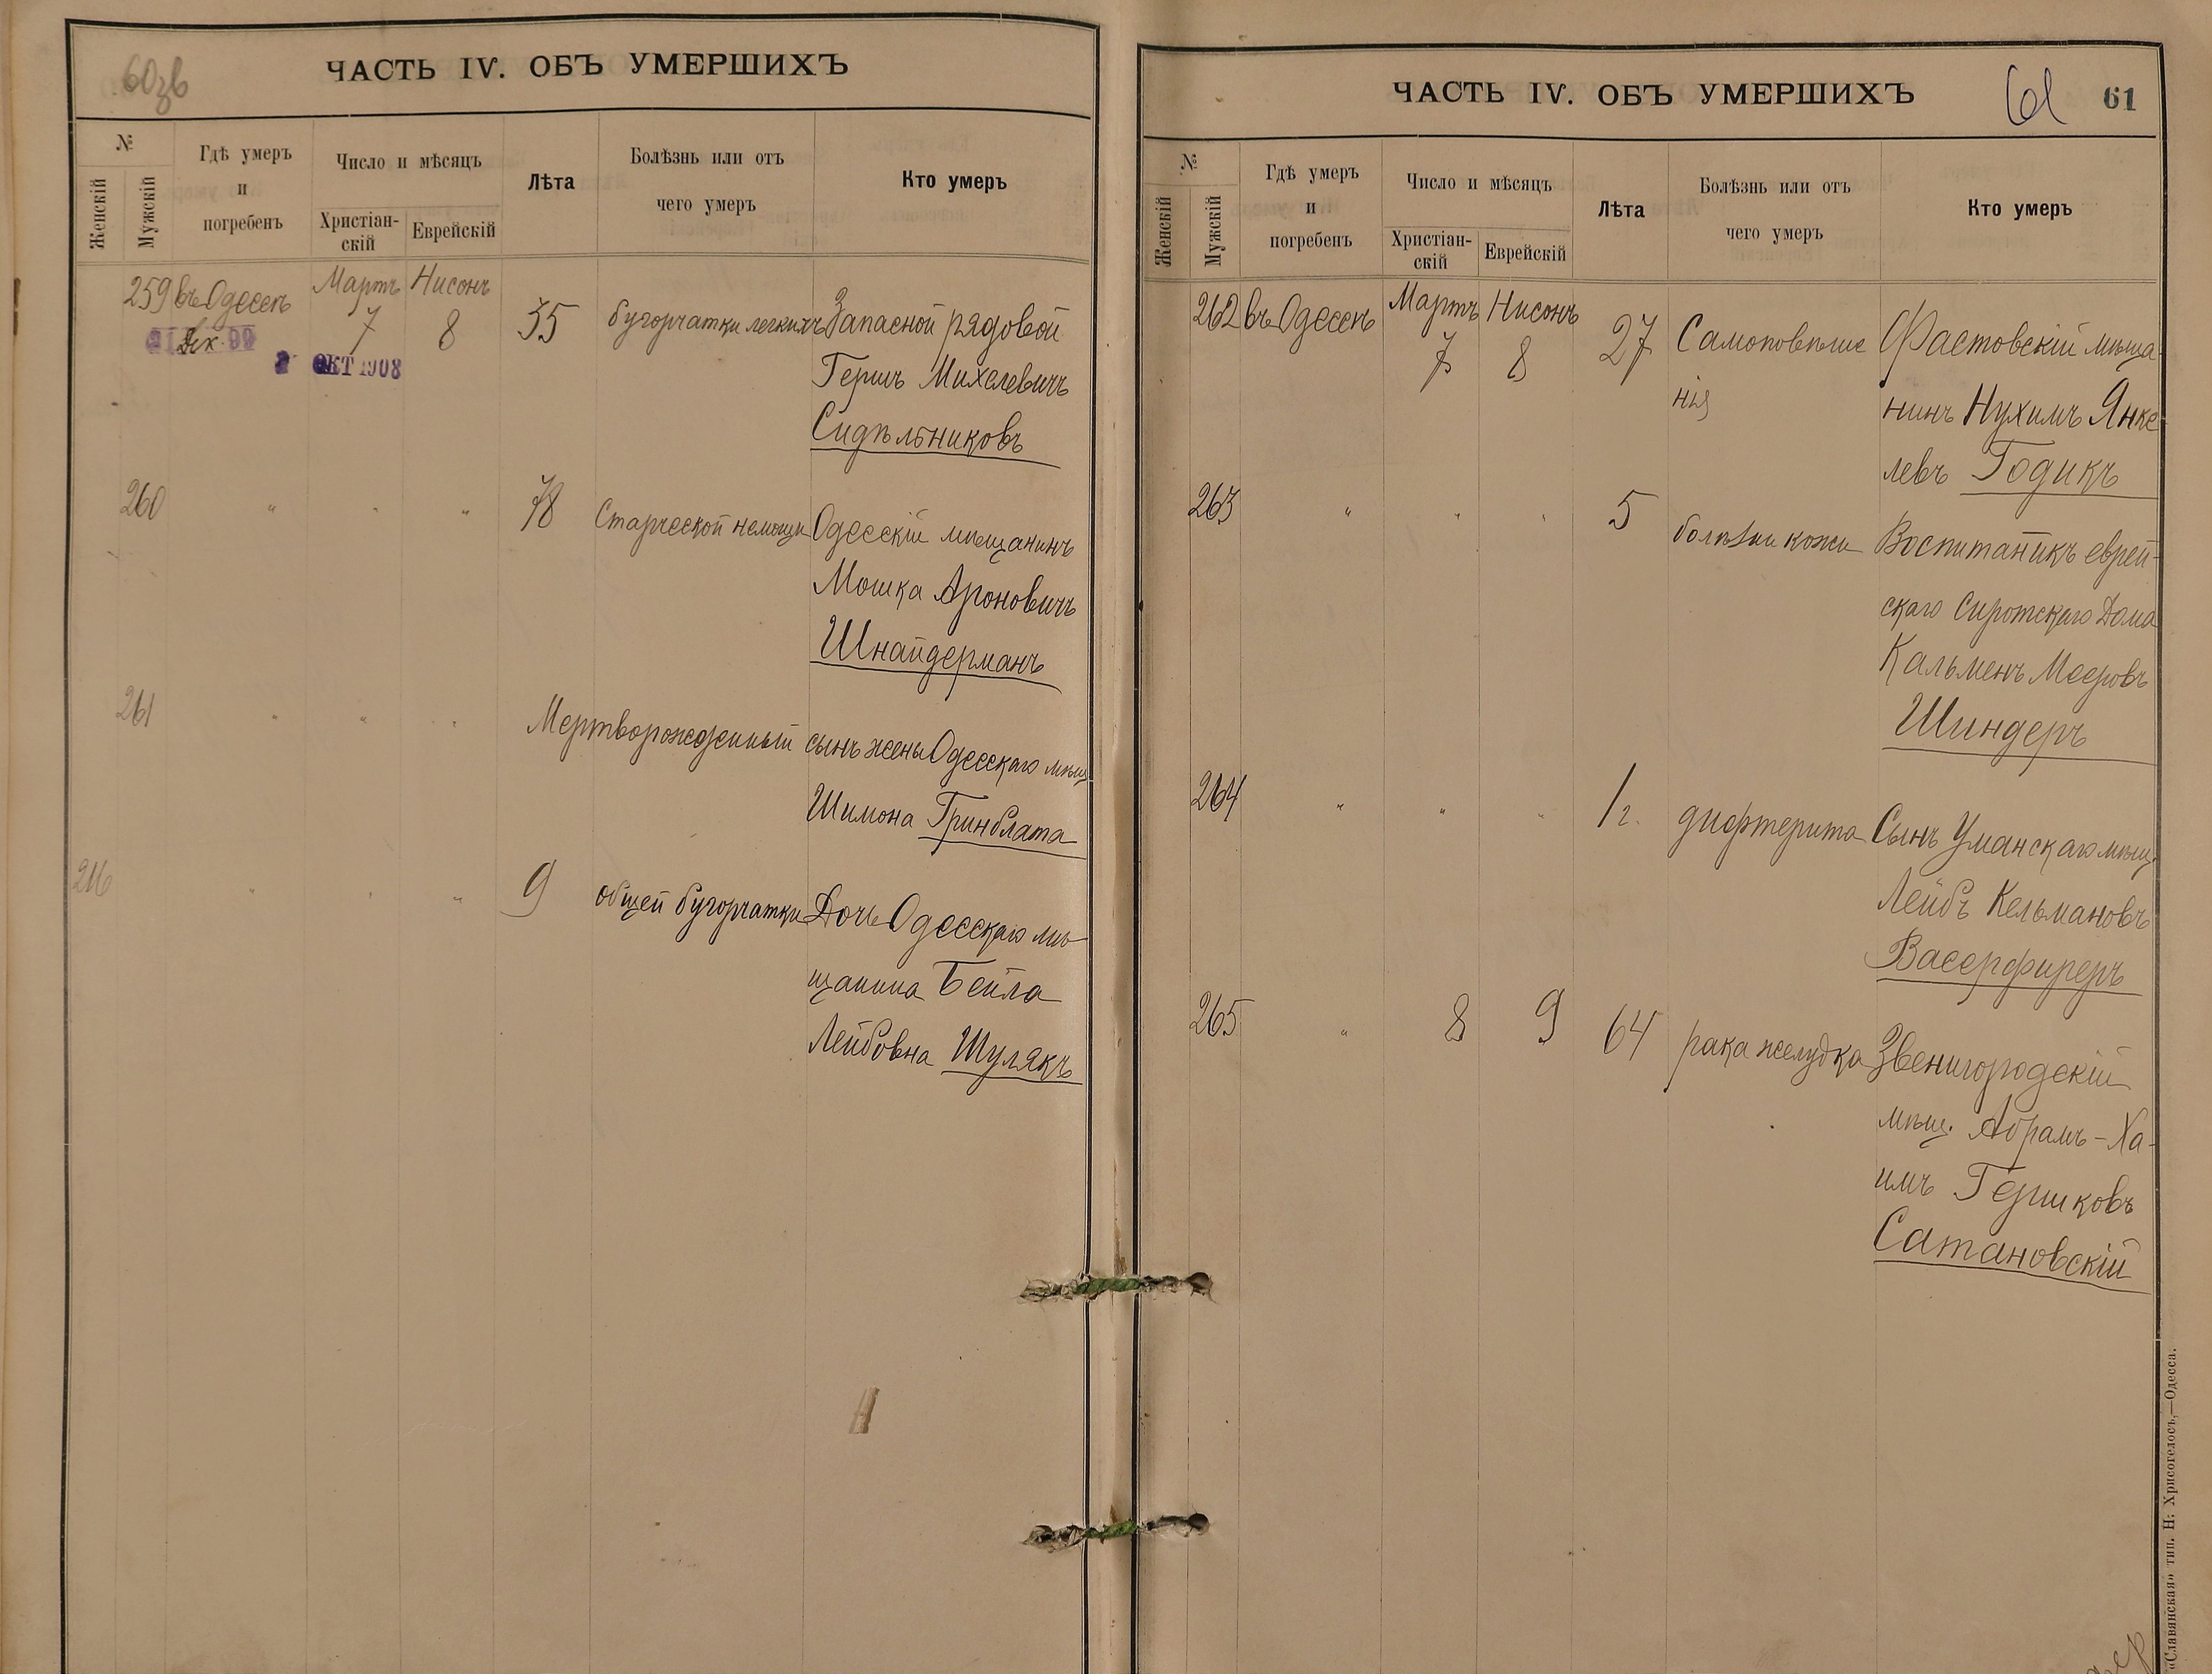 60зв
ЧАСТЬ IV. ОБЪ УМЕРШИХЪ
№
Женскій
Мужскій
Гдѣ умеръ
и
погребенъ
Число и мѣсяцъ
Христіан-
скій
Еврейскій
Лѣта
Болѣзнь или отъ
чего умеръ
Кто умеръ
259 въ Одессѣ Мартъ 7 Нисонъ 8 35 бугорчатки легкихъ Запасной рядовой
Дек 99
ОКТ 1908
Гершъ Михелевичъ
Сидѣльниковъ
260 " " " 78 Старческой немощи Одесскій мѣщанинъ
Мошка Ароновичъ
Шнайдерманъ
261 " " " Мертворожденный сынъ жены Одесскаго мѣщ
Шимона Гринблата
216 " " " 9 общей бугорчатки Дочь Одесскаго мѣ
щанина Бейла
Лейбовна Шулякъ
ЧАСТЬ IV. ОБЪ УМЕРШИХЪ
61
61
№
Женскій
Мужскій
Гдѣ умеръ
и
погребенъ
Число и мѣсяцъ
Христіан-
скій
Еврейскій
Лѣта
Болѣзнь или отъ
чего умеръ
Кто умеръ
262 въ Одессѣ Мартъ 7 Нисонъ 8 27 Самоповѣше Фастовскій мѣща
нія нинъ Нухимъ Янке
левъ Годикъ
263 " " " 5 болѣзни кожи Воспитаникъ еврей-
скаго Сиротскаго Дома
Кальменъ Мееровъ
Шиндеръ
264 " " " 1 г. дифтерита Сынъ Уманскаго мѣщ.
Лейбъ Кельмановъ
Васерфиреръ
265 " 8 9 64 рака желудка Звенигородскій
мѣщ. Абрамъ-Ха-
имъ Гершковъ
Сатановскій
«Славянская» тип. Н. Хрисогелосъ,—Одесса.